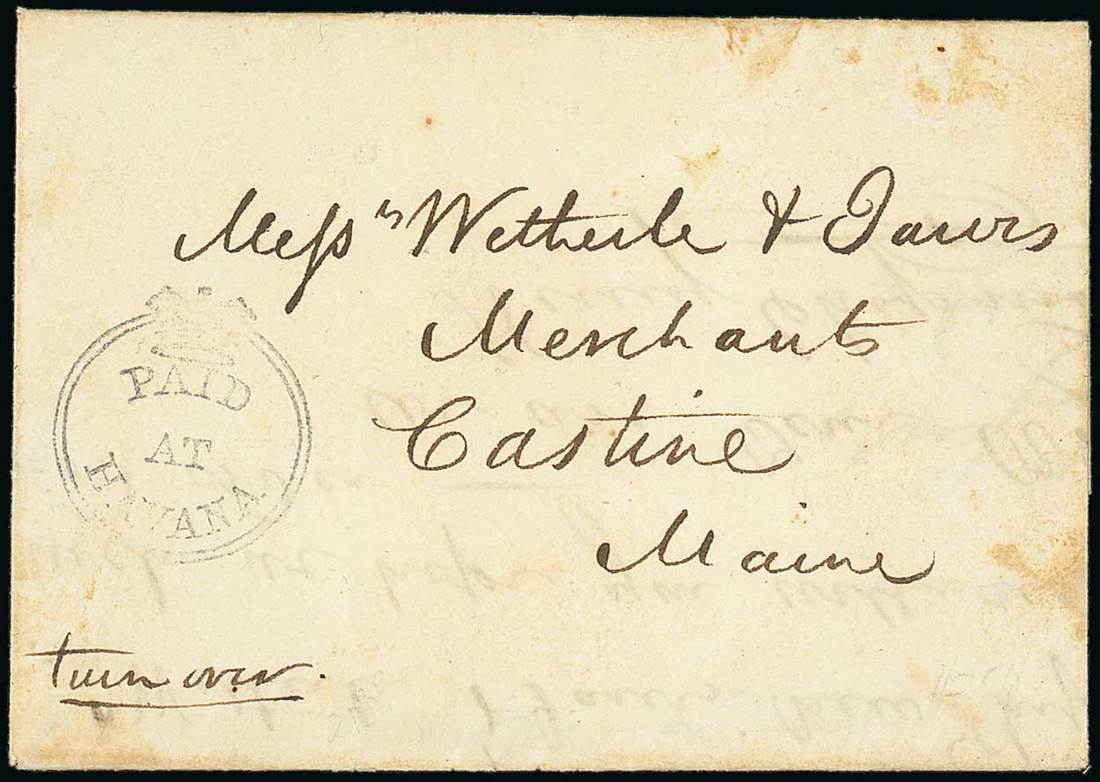 Messrs Wetherle & Jarvis
Merchants
Castine
Maine
PAID
AT
HAVANA
turn over.